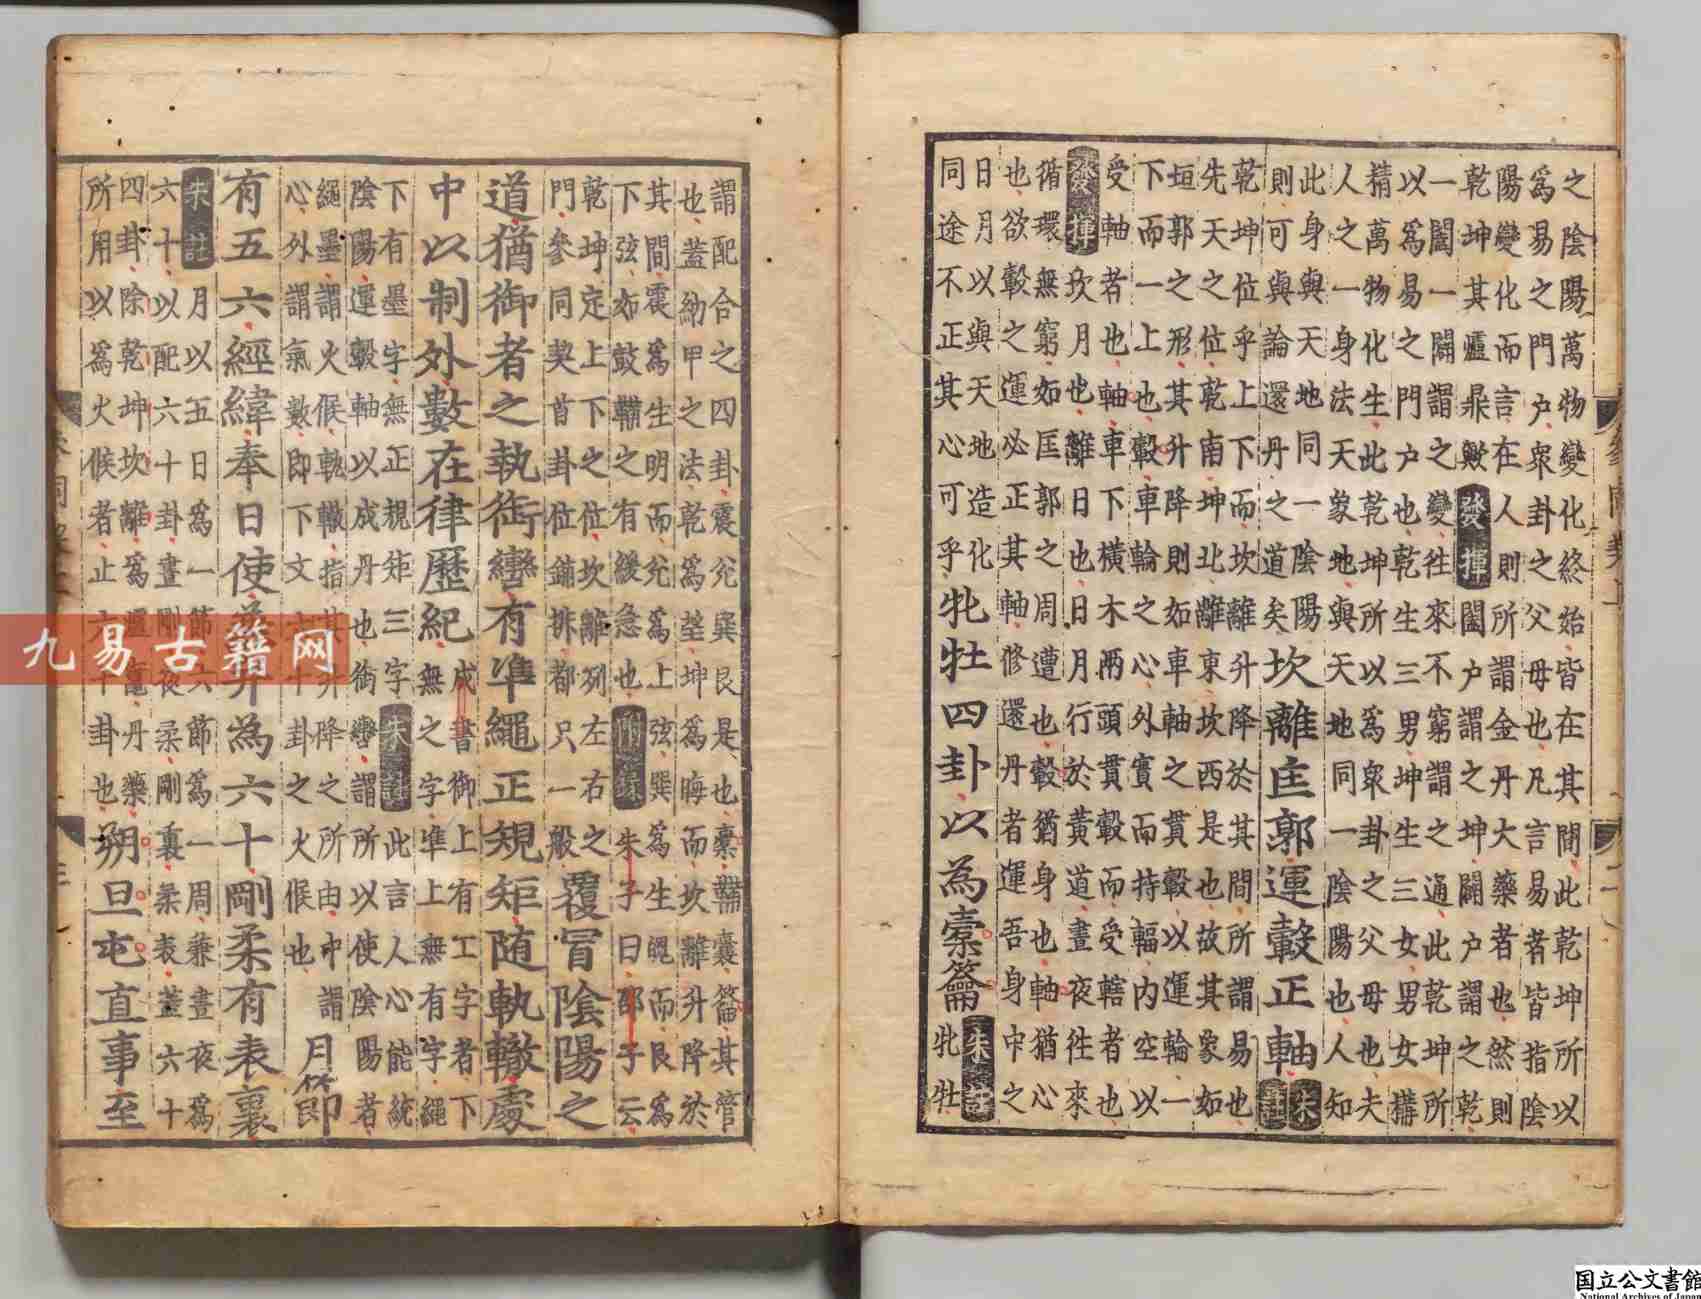 之陰陽萬物變化終始皆在其間此乾坤所以
爲易之門户衆卦之父母也凡言易者皆指陰
陽變化而言在人則所謂金丹大藥者也然則
乾坤其爐鼎歟發揮闔户謂之坤闢户謂之乾
一闔一闢謂之變往來不窮謂之通此乾坤所
以爲易之門户也乾生三男坤生三女男女搆
精萬物化生此乾坤所以爲衆卦之父母也夫
人之一身法天象地與天地同一陰陽也人知
此身與天地同一陰陽
則可與論還丹之道矣
坎離匡郭運轂正軸朱註
乾坤位乎上下而坎離升降於其間所謂易也
先天之位乾南坤北離東坎西是也故其象如
垣郭之形其升降則如車軸之貫轂以運輪一
下而一上也轂車輪之心外實而持輻內空以
受軸者也軸車下橫木兩頭貫轂而受轄者也
發揮坎月也離日也日月行於黃道晝夜往來
循環無窮如匡郭之周遭也轂猶身也軸猶心
也欲轂之運必正其軸修還丹者運吾身中之
日月以與天地造化
同途不正其心可乎
牝牡四卦以為橐籥朱註牝牡
謂配合之四卦震兌巽艮是也橐鞴囊籥其管
也蓋納甲之法乾爲望坤爲晦而坎離升降於
其間震爲生明而兌爲上弦巽爲生魄而艮爲
下弦如鼓鞴之有緩急也附錄朱子曰邵子云
乾坤定上下之位坎離列左右之
門參同契首卦位鋪排都只一般
覆冒陰陽之
道猶御者之執銜轡有準繩正規矩随軌轍處
中以制外數在律歷紀
成書御上有工字者下
無之字準上無有字繩
下有墨字無正規矩三字朱註此言人心能統
陰陽運轂軸以成丹也銜轡謂所以使陰陽者
繩墨謂火候軌轍指其升降之所由中謂
心外謂氣數即下文六十卦之火候也
月節
有五六經緯奉日使兼并為六十剛柔有表裏
朱註月以五日爲一節六節爲一周兼晝夜爲
六十以配六十卦晝剛夜柔剛裏柔表蓋六十
四卦除乾坤坎離爲爐竈丹藥
所用以爲火候者止六十卦也
朔旦屯直事至
九易古籍网
国立公文書館
National Archives of Japan